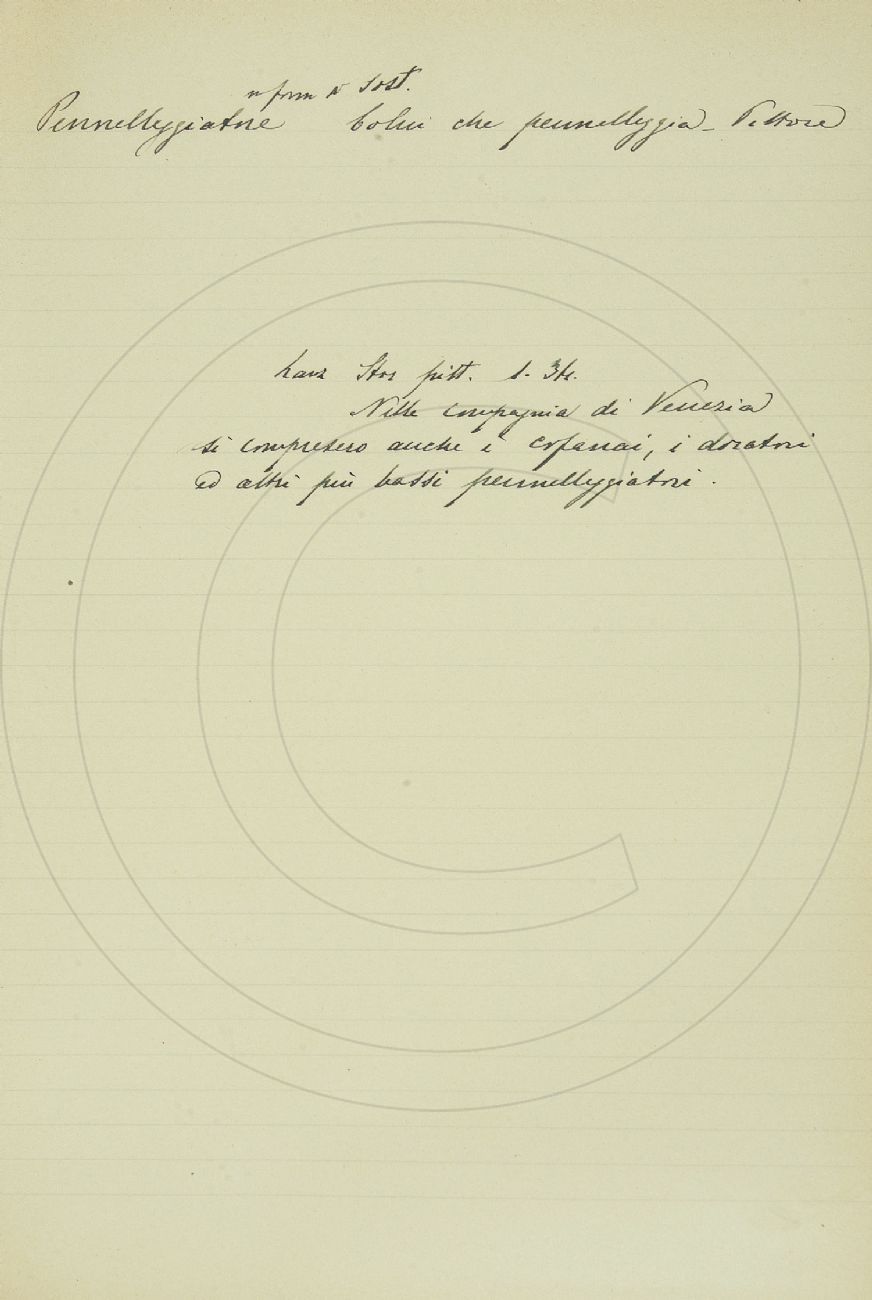 Sost.
Pennelleggiatore Colui che pennelleggia - Pittore
Lanz Stor pitt. 1.
Nelle compagnia di Venezia
si compresero anche i cofanai, i doratori
ed altri più bassi pennelleggiatori.